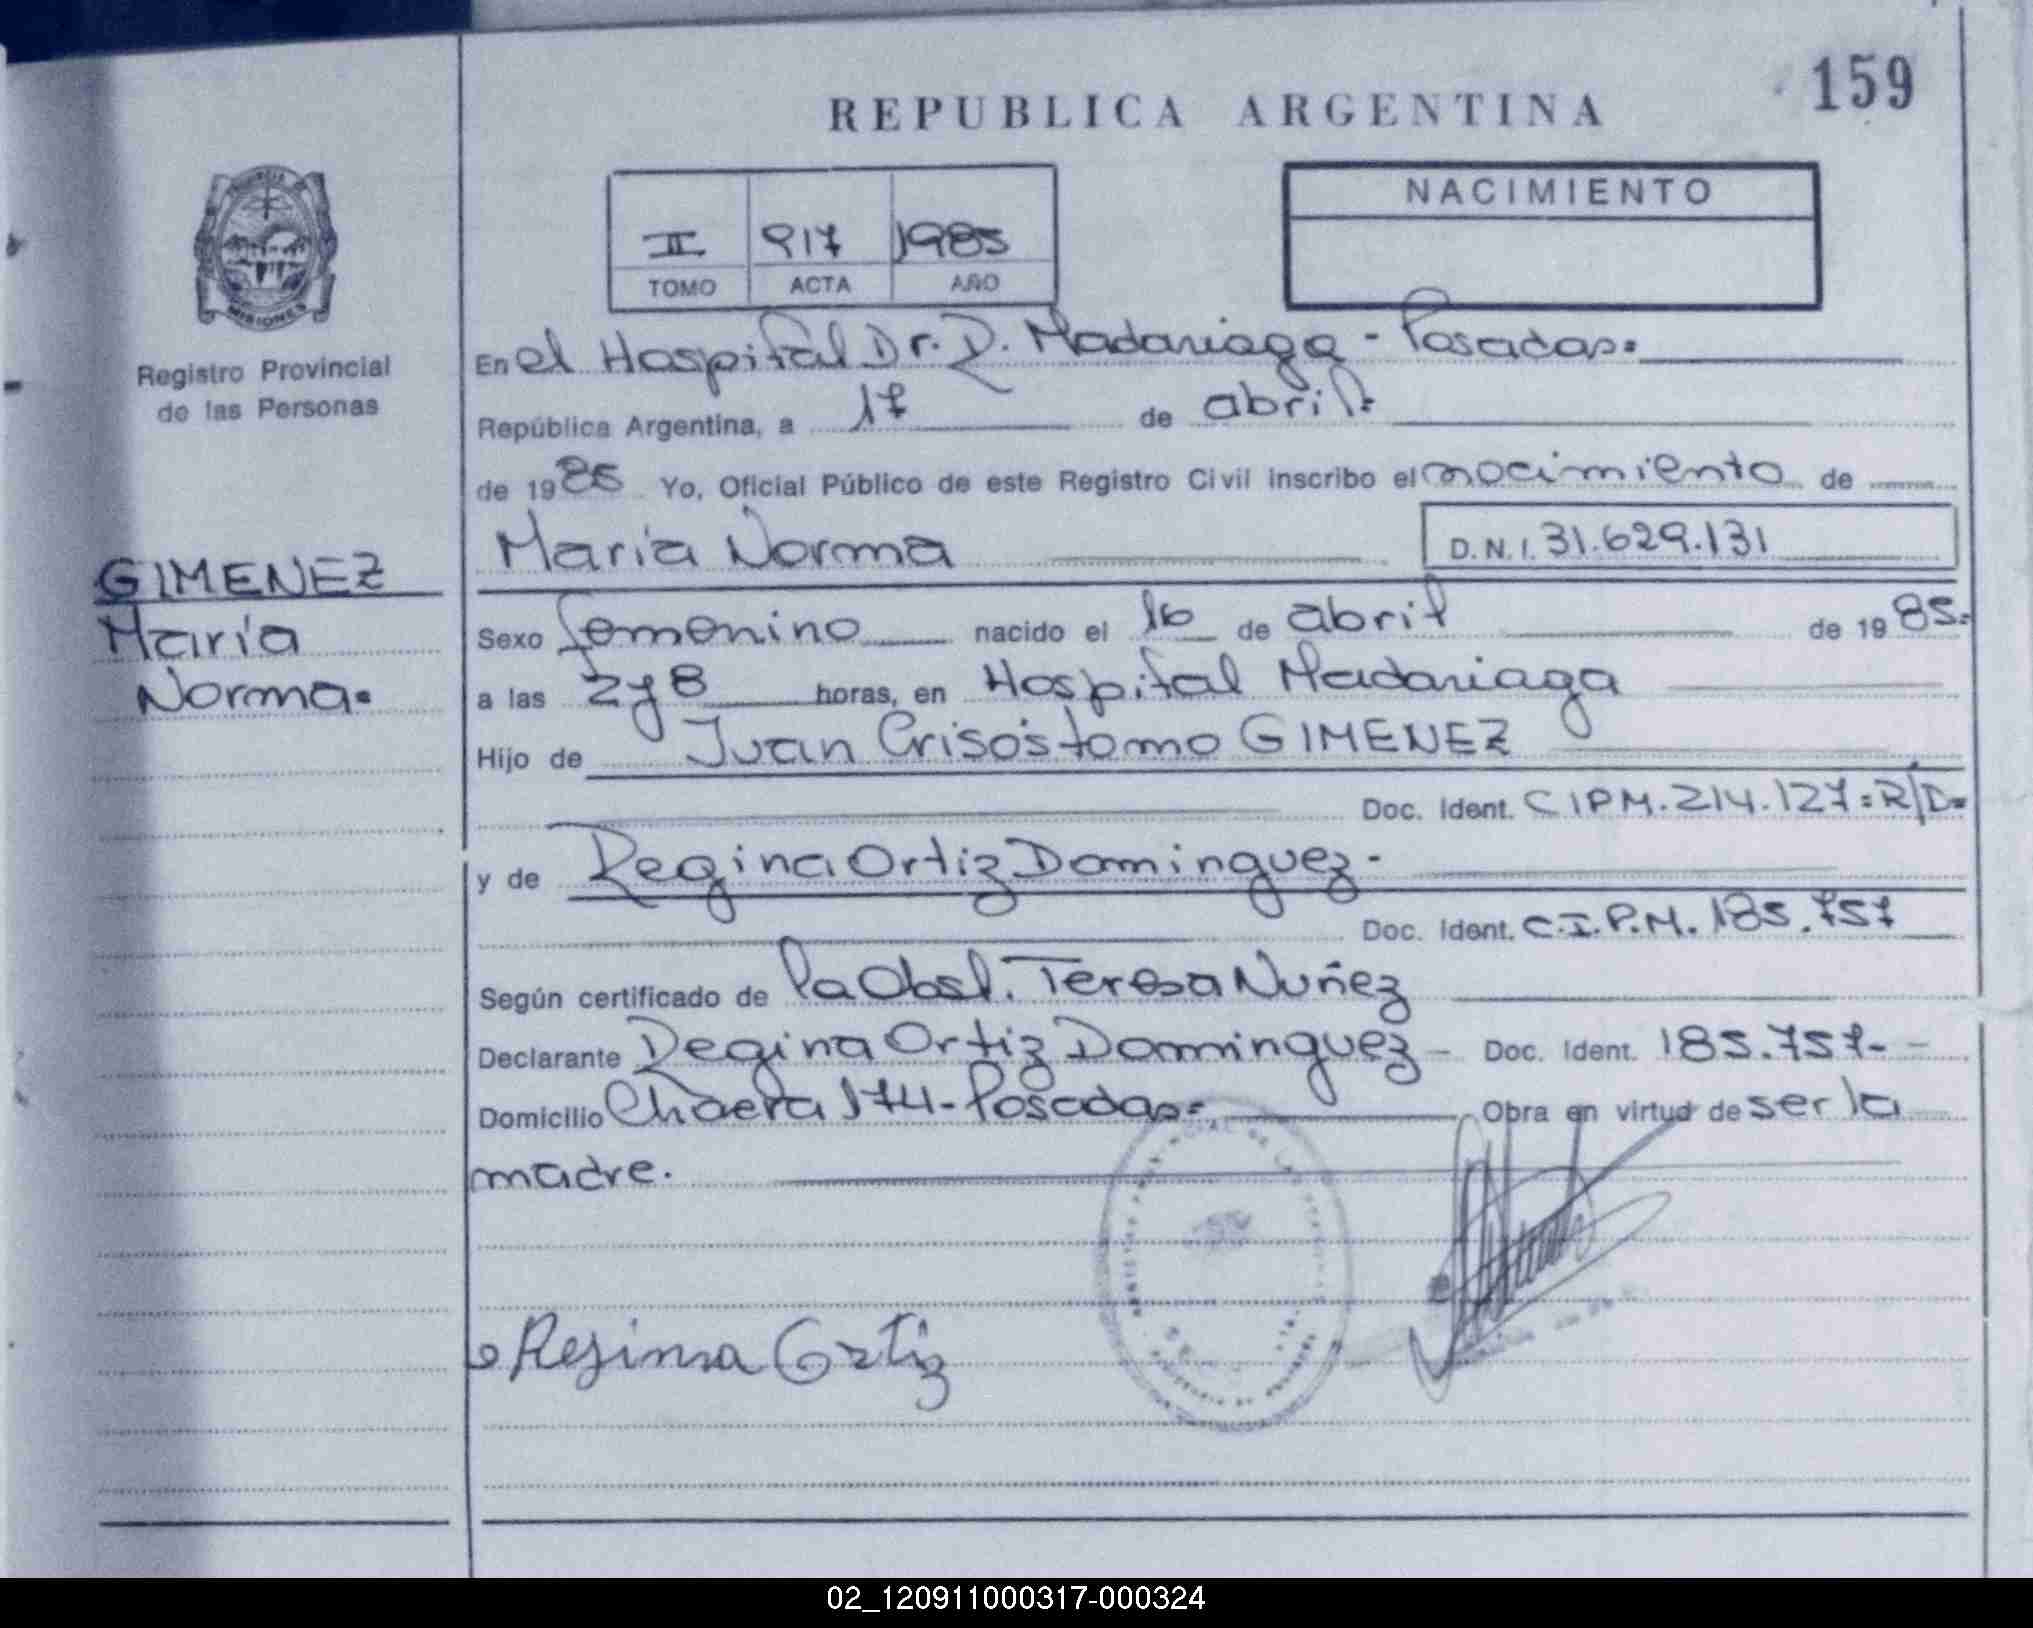 REPUBLICA ARGENTINA
159
MISIONES
Registro Provincial
de las Personas
II 917 1985
TOMO ACTA AÑO
NACIMIENTO
En el Hospital Dr. R. Madariaga - Posadas.
República Argentina, a 17 de abril.
de 1985 Yo, Oficial Público de este Registro Civil inscribo el nacimiento de
María Norma D.N.I. 31.629.131
GIMENEZ
María
Norma.
Sexo femenino nacido el 16 de abril de 1985.
a las 2 y 8 horas, en Hospital Madariaga
Hijo de Juan Crisóstomo GIMENEZ
Doc. Ident. CIPM. 214.127 = R/D=
y de Regina Ortiz Dominguez -
Doc. Ident. C.I.P.M. 185.757
Según certificado de la Obst. Teresa Nuñez
Declarante Regina Ortiz Dominguez - Doc. Ident. 185.757 - -
Domicilio Chacra 174 - Posadas = Obra en virtud de ser la
madre.
Regina Ortiz
02_120911000317-000324